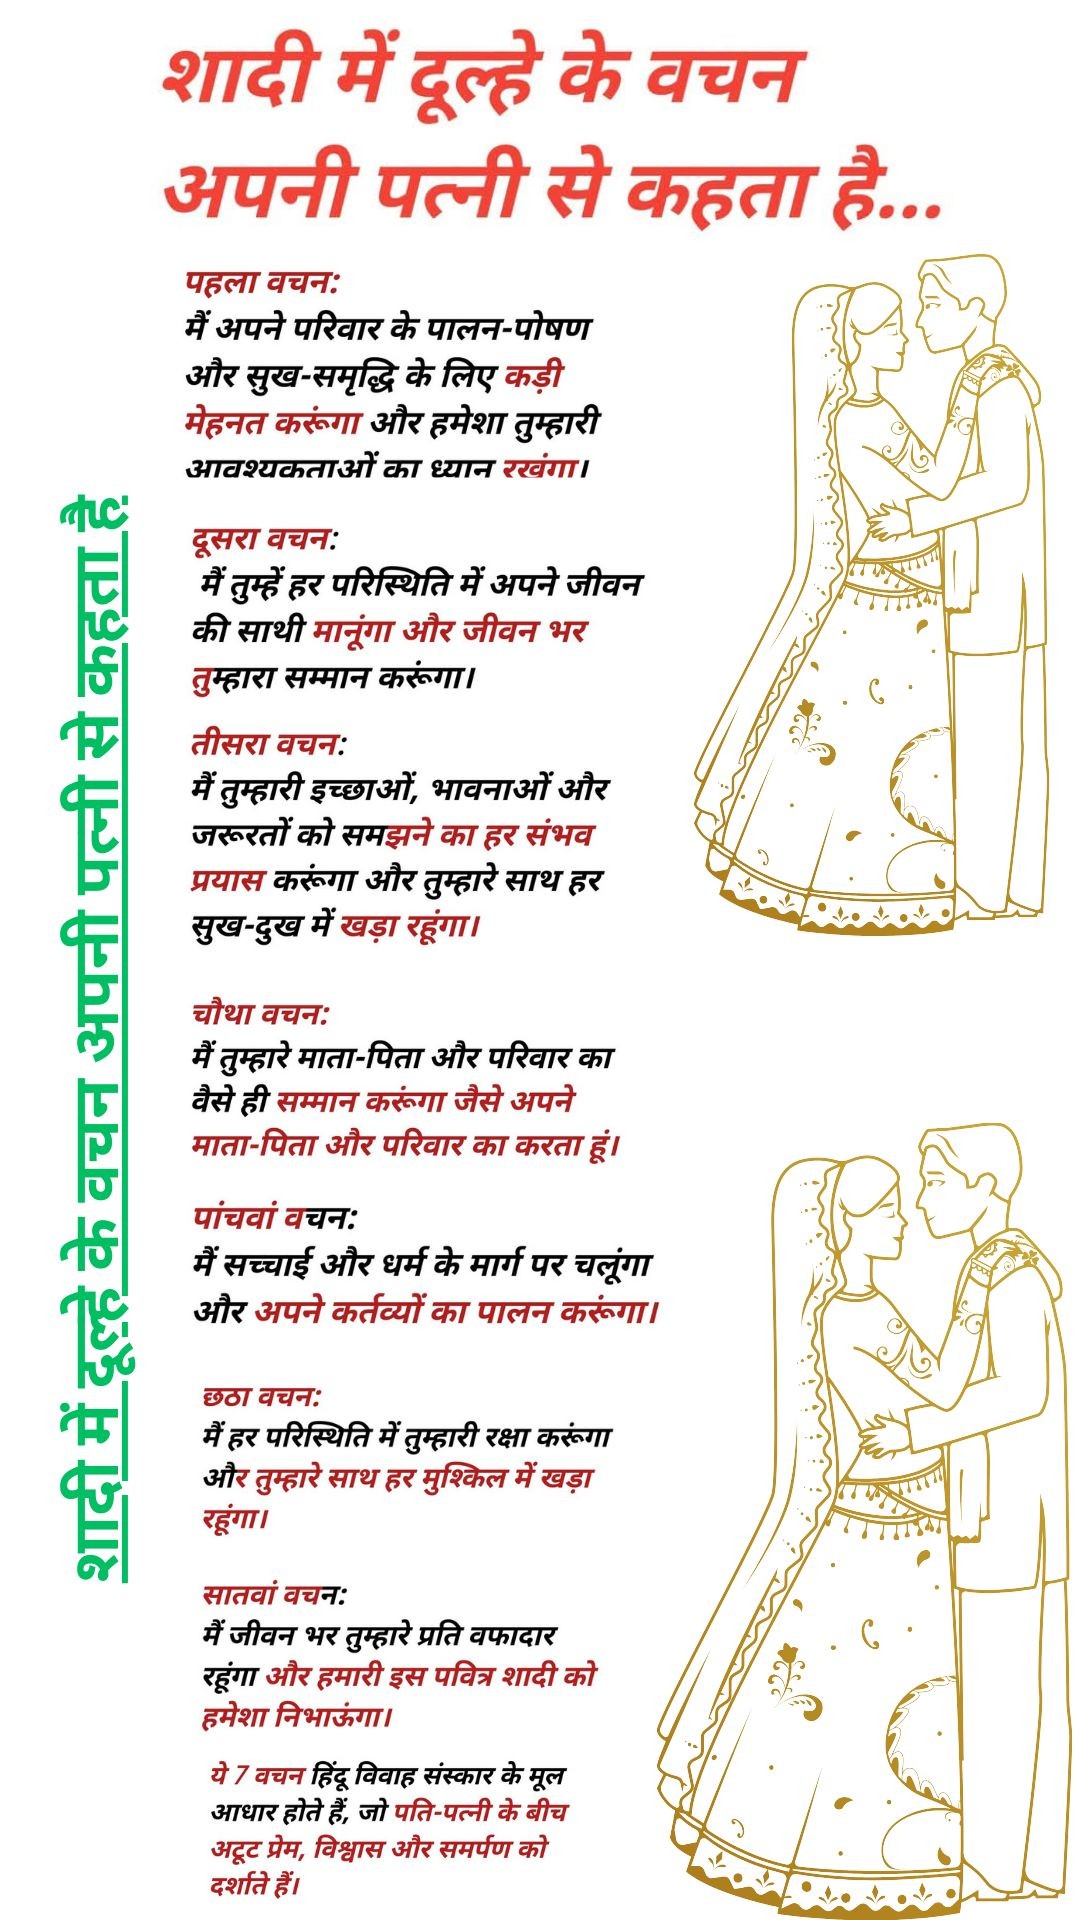 शादी में दूल्हे के वचन
अपनी पत्नी से कहता है...
पहला वचन:
मैं अपने परिवार के पालन-पोषण
और सुख-समृद्धि के लिए कड़ी
मेहनत करूंगा और हमेशा तुम्हारी
आवश्यकताओं का ध्यान रखूंगा।
दूसरा वचन:
मैं तुम्हें हर परिस्थिति में अपने जीवन
की साथी मानूंगा और जीवन भर
तुम्हारा सम्मान करूंगा।
तीसरा वचन:
मैं तुम्हारी इच्छाओं, भावनाओं और
जरूरतों को समझने का हर संभव
प्रयास करूंगा और तुम्हारे साथ हर
सुख-दुख में खड़ा रहूंगा।
चौथा वचन:
मैं तुम्हारे माता-पिता और परिवार का
वैसे ही सम्मान करूंगा जैसे अपने
माता-पिता और परिवार का करता हूं।
पांचवां वचन:
मैं सच्चाई और धर्म के मार्ग पर चलूंगा
और अपने कर्तव्यों का पालन करूंगा।
छठा वचन:
मैं हर परिस्थिति में तुम्हारी रक्षा करूंगा
और तुम्हारे साथ हर मुश्किल में खड़ा
रहूंगा।
सातवां वचन:
मैं जीवन भर तुम्हारे प्रति वफादार
रहूंगा और हमारी इस पवित्र शादी को
हमेशा निभाऊंगा।
ये 7 वचन हिंदू विवाह संस्कार के मूल
आधार होते हैं, जो पति-पत्नी के बीच
अटूट प्रेम, विश्वास और समर्पण को
दर्शाते हैं।
शादी में दूल्हे के वचन अपनी पत्नी से कहता है